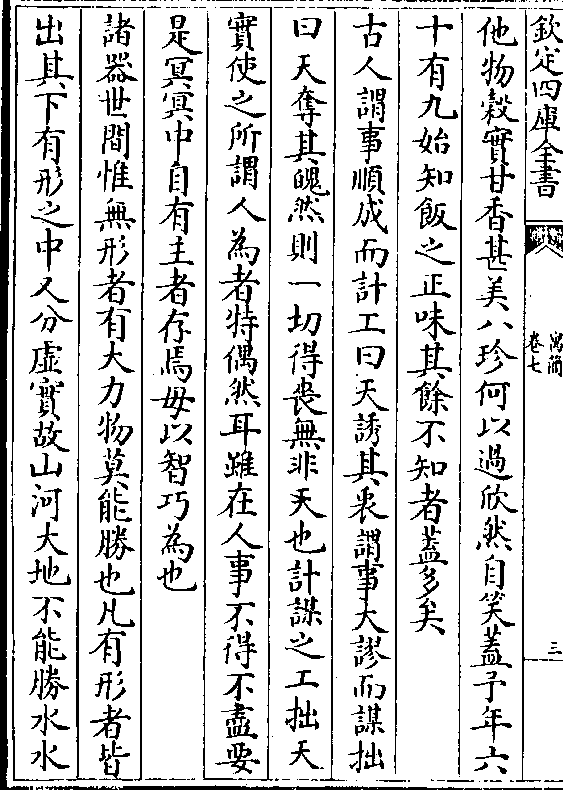 欽定四庫全書
寓簡
卷七
三
他物穀實甘香甚美八珍何以過欣然自笑蓋予年六
十有九始知飯之正味其餘不知者蓋多矣
古人謂事順成而計工曰天誘其衷謂事大謬而謀拙
曰天奪其魄然則一切得喪無非天也計謀之工拙天
實使之所謂人為者特偶然耳雖在人事不得不盡要
是冥冥中自有主者存焉毋以智巧為也
諸器世間惟無形者有大力物莫能勝也凡有形者皆
出其下有形之中又分虛實故山河大地不能勝水水